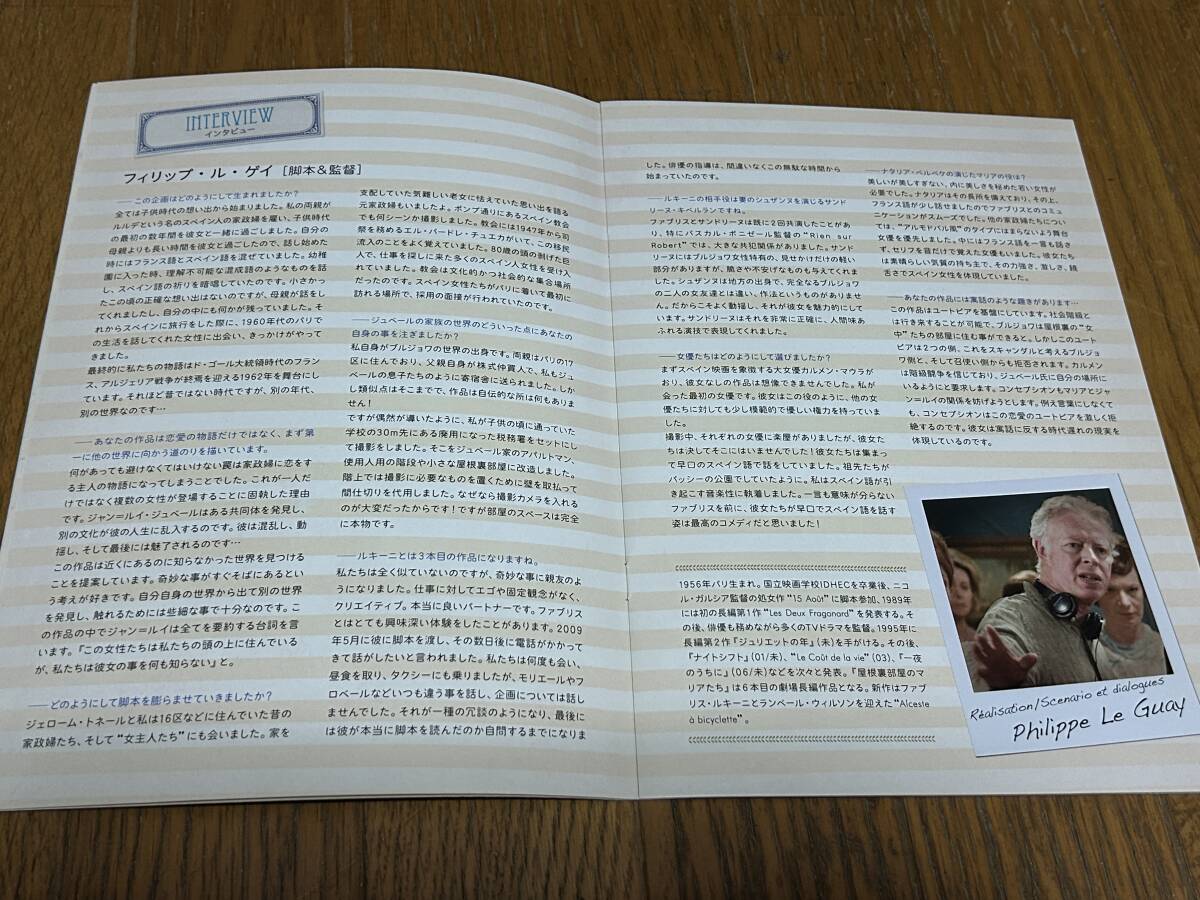 INTERVIEW
インタビュー
フィリップ・ル・ゲイ [脚本&監督]
――この企画はどのようにして生まれましたか?
全ては子供時代の想い出から始まりました。私の両親が
ルルデという名のスペイン人の家政婦を雇い、子供時代
の最初の数年間を彼女と一緒に過ごしました。自分の
母親よりも長い時間を彼女と過ごしたので、話し始めた
時にはフランス語とスペイン語を混ぜていました。幼稚
園に入った時、理解不可能な混成語のようなものを話
し、スペイン語の祈りを暗唱していたのです。小さかっ
たこの頃の正確な想い出はないのですが、母親が話をし
てくれましたし、自分の中にも何かが残っていました。そ
れからスペインに旅行をした際に、1960年代のパリで
の生活を話してくれた女性に出会い、きっかけがやって
きました。
最終的に私たちの物語はド・ゴール大統領時代のフラン
ス、アルジェリア戦争が終焉を迎える1962年を舞台にし
ています。それほど昔ではない時代ですが、別の年代、
別の世界なのです…
――あなたの作品は恋愛の物語だけではなく、まず第
一に他の世界に向かう道のりを描いています。
何があっても避けなくてはいけない罠は家政婦に恋をす
る主人の物語になってしまうことでした。これが一人だ
けではなく複数の女性が登場することに固執した理由
です。ジャン=ルイ・ジュベールはある共同体を発見し、
別の文化が彼の人生に乱入するのです。彼は混乱し、動
揺し、そして最後には魅了されるのです…
この作品は近くにあるのに知らなかった世界を見つける
ことを提案しています。奇妙な事がすぐそばにあるとい
う考えが好きです。自分自身の世界から出て別の世界
を発見し、触れるためには些細な事で十分なのです。こ
の作品の中でジャン=ルイは全てを要約する台詞を言
います。『この女性たちは私たちの頭の上に住んでいる
が、私たちは彼女の事を何も知らない』と。
――どのようにして脚本を膨らませていきましたか?
ジェローム・トネールと私は16区などに住んでいた昔の
家政婦たち、そして“女主人たち”にも会いました。家を
支配していた気難しい老女に怯えていた思い出を語る
元家政婦もいましたよ。ポンプ通りにあるスペイン教会
でも何シーンか撮影しました。教会には1947年から司
祭を務めるエル・パードレ・チュエカがいて、この移民
流入のことをよく覚えていました。80歳の頭の剥げた巨
人で、仕事を探しに来た多くのスペイン人女性を受け入
れていました。教会は文化的かつ社会的な集合場所
だったのです。スペイン女性たちがパリに着いて最初に
訪れる場所で、採用の面接が行われていたのです。
――ジュベールの家族の世界のどういった点にあなたの
自身の事を注ぎましたか?
私自身がブルジョワの世界の出身です。両親はパリの17
区に住んでおり、父親自身が株式仲買人で、私もジュ
ベールの息子たちのように寄宿舎に送られました。しか
し類似点はそこまでで、作品は自伝的な所は何もありま
せん!
ですが偶然が導いたように、私が子供の頃に通っていた
学校の30m先にある廃用になった税務署をセットにし
て撮影をしました。そこをジュベール家のアパルトマン、
使用人用の階段や小さな屋根裏部屋に改造しました。
階上では撮影に必要なものを置くために壁を取払って
間仕切りを代用しました。なぜなら撮影カメラを入れる
のが大変だったからです!ですが部屋のスペースは完全
に本物です。
――ルキーニとは3本目の作品になりますね。
私たちは全く似ていないのですが、奇妙な事に親友のよ
うになりました。仕事に対してエゴや固定観念がなく、
クリエイティブ。本当に良いパートナーです。ファブリス
とはとても興味深い体験をしたことがあります。2009
年5月に彼に脚本を渡し、その数日後に電話がかかって
きて話がしたいと言われました。私たちは何度も会い、
昼食を取り、タクシーにも乗りましたが、モリエールやフ
ロベールなどいつも違う事を話し、企画については話し
ませんでした。それが一種の冗談のようになり、最後に
は彼が本当に脚本を読んだのか自問するまでになりま
した。俳優の指導は、間違いなくこの無駄な時間から
始まっていたのです。
――ルキーニの相手役は妻のシュザンヌを演じるサンド
リーヌ・キベルランですね。
ファブリスとサンドリーヌは既に2回共演したことがあ
り、特にパスカル・ボニゼール監督の“Rien sur
Robert”では、大きな共犯関係がありました。サンド
リーヌにはブルジョワ女性特有の、見せかけだけの軽い
部分がありますが、脆さや不安げなものも与えてくれま
した。シュザンヌは地方の出身で、完全なるブルジョワ
の二人の女友達とは違い、作法というものがありませ
ん。だからこそよく動揺し、それが彼女を魅力的にして
います。サンドリーヌはそれを非常に正確に、人間味あ
ふれる演技で表現してくれました。
――女優たちはどのようにして選びましたか?
まずスペイン映画を象徴する大女優カルメン・マウラが
おり、彼女なしの作品は想像できませんでした。私が
会った最初の女優です。彼女はこの役のように、他の女
優たちに対しても少し模範的で優しい権力を持っていま
した。
撮影中、それぞれの女優に楽屋がありましたが、彼女た
ちは決してそこにはいませんでした!彼女たちは集まっ
て早口のスペイン語で話をしていました。祖先たちが
パッシーの公園でしていたように。私はスペイン語が引
き起こす音楽性に執着しました。一言も意味が分らない
ファブリスを前に、彼女たちが早口でスペイン語を話す
姿は最高のコメディだと思いました!
1956年パリ生まれ。国立映画学校IDHECを卒業後、ニコ
ル・ガルシア監督の処女作“15 Août”に脚本参加、1989年
には初の長編第1作“Les Deux Fragonard”を発表する。そ
の後、俳優も務めながら多くのTVドラマを監督。1995年に
長編第2作『ジュリエットの年』(未)を手がける。その後、
『ナイトシフト』(01/未)、“Le Coût de la vie”(03)、『一夜
のうちに』(06/未)などを次々と発表。『屋根裏部屋のマ
リアたち』は6本目の劇場長編作品となる。新作はファブ
リス・ルキーニとランベール・ウィルソンを迎えた“Alceste
à bicyclette”。
――ナタリア・ベルベケの演じたマリアの役は?
美しいが美しすぎない、内に美しさを秘めた若い女性が
必要でした。ナタリアはその長所を備えており、その上、
フランス語が少し話せましたのでファブリスとのコミュ
ニケーションがスムーズでした。他の家政婦たちについ
ては、“アルモドバル風”のタイプにはまらないよう舞台
女優を優先しました。中にはフランス語を一言も話さ
ず、セリフを音だけで覚えた女優もいました。彼女たち
は素晴らしい気質の持ち主で、その力強さ、激しさ、饒
舌さでスペイン女性を体現していました。
――あなたの作品には寓話のような趣きがあります…
この作品はユートピアを基盤にしています。社会階級と
は行き来することが可能で、ブルジョワは屋根裏の“女
中”たちの部屋に住む事ができると。しかしこのユート
ピアは2つの側、これをスキャンダルと考えるブルジョ
ワ側と、そして召使い側からも拒否されます。カルメン
は階級闘争を信じており、ジュベール氏に自分の場所に
いるようにと要求します。コンセプシオンもマリアとジャ
ン=ルイの関係を妨げようとします。例え言葉にしなくて
も、コンセプシオンはこの恋愛のユートピアを激しく拒
絶するのです。彼女は寓話に反する時代遅れの現実を
体現しているのです。
Réalisation/Scenario et dialogues
Philippe Le Guay